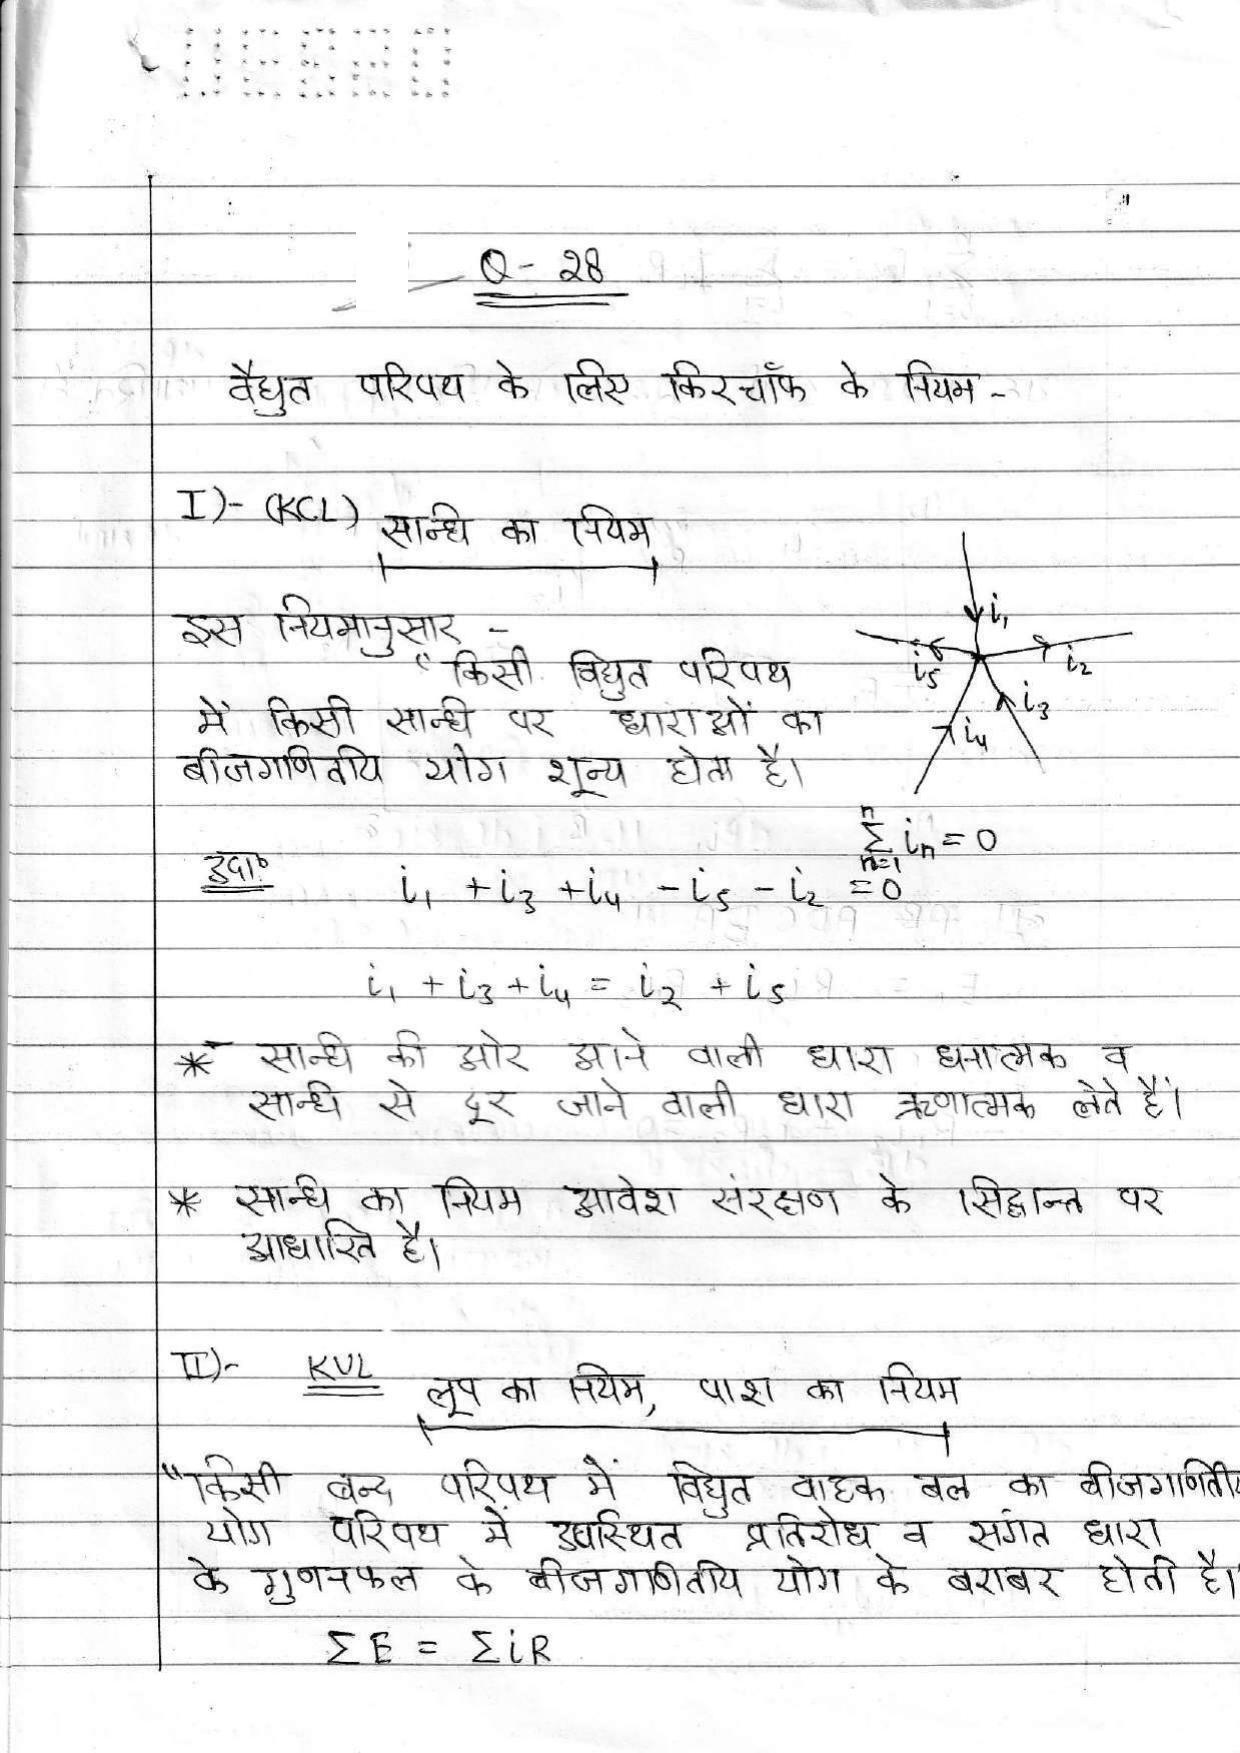 Q - 28
वैद्युत परिपथ के लिए किरचॉफ के नियम -
I)- (KCL) सान्धि का नियम
इस नियमानुसार -
i₁
i₅ i₂
"किसी विद्युत परिपथ
i₃
में किसी सान्धि पर धाराओं का
i₄
बीजगणितीय योग शून्य होता है।
n
Σ iₙ = 0
n=1
उदा० i₁ + i₃ + i₄ - i₅ - i₂ = 0
i₁ + i₃ + i₄ = i₂ + i₅
* सान्धि की ओर आने वाली धारा धनात्मक व
सान्धि से दूर जाने वाली धारा ऋणात्मक लेते हैं।
* सान्धि का नियम आवेश संरक्षण के सिद्धान्त पर
आधारित है।
II)- KVL लूप का नियम, पाश का नियम
"किसी बन्द परिपथ में विद्युत वाहक बल का बीजगणितीय
योग परिपथ में उपस्थित प्रतिरोध व संगत धारा
के गुणनफल के बीजगणितीय योग के बराबर होती है।"
ΣE = ΣiR